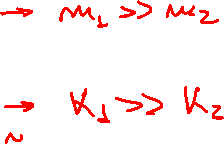 → m₁ >> m₂
→ K₁ >> K₂
~